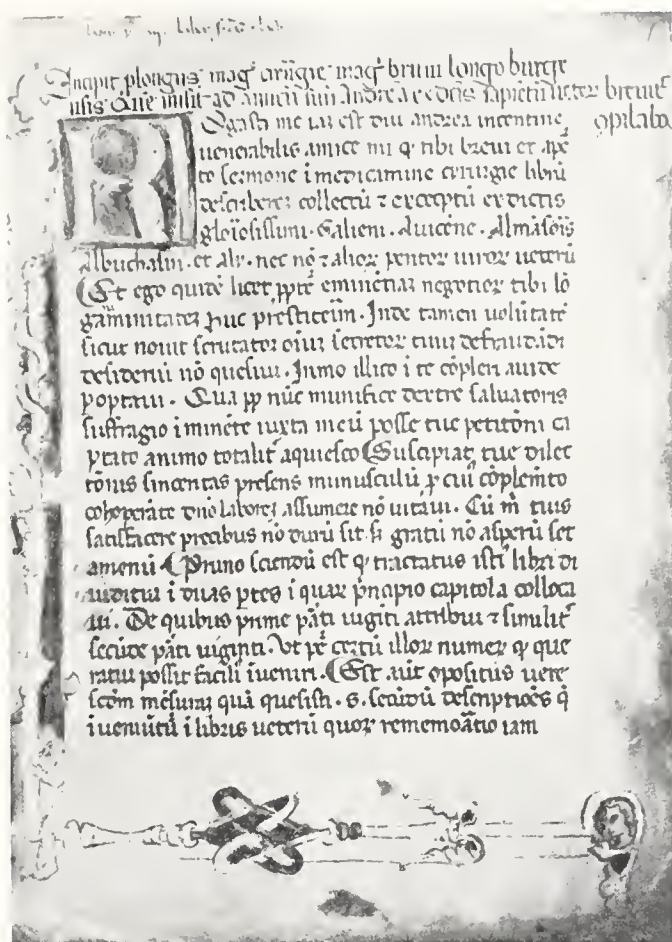 Incipit plongus mag̃ cirugie mag̃ bruni longo burge
nsis Que misit ad amicũ suũ Andreã ex dictis sapientũ ueter breuit̃
opilata
Rogasti me iaʒ est diu andrea incentine
uenerabilis amice mi q tibi breui et apẽ
to sermone i medicamine cyrurgie librũ
describereʒ collectũ ⁊ exceptũ ex dictis
gloĩosissimi . Galieni . Auicene . Almasoĩs
Albuchasin . et aly . nec nõ ⁊ alioꝝ peritoꝝ uiroꝝ ueterũ
Et ego quidẽ licet ꝓpt̃ eminẽtiaʒ negotioꝝ tibi lõ
gãnimitateʒ huc prestiterim . Inde tamen uolũtatẽ
sicut nouit scrutator oĩuʒ secretoꝝ tuuʒ defraudãdi
desideriũ nõ quesiui . Inmo illico i te cõpleri auide
ꝑoptaui . Qua ꝓp nũc munifice dextre saluatoris
suffragio iminẽte iuxta meũ posse tue petitõni ca
ptato animo totalit̃ aquiesco Suscipiat tue dilec
tionis sinceritas presens munusculũ ꝓ cui cõplemẽto
cohoperãte dño laboreʒ assumere nõ uitaui . Cũ m̃ tuis
satisfacere precibus nõ durũ sit . s̃ gratũ nõ asperũ set
amenũ Primo sciendũ est q tractatus isti libri di
uiditur i duas ꝑtes i quaꝝ prĩcipio capitola colloca
ui . De quibus prime ꝑati uigĩti attribui ⁊ similit̃
secũde ꝑati uiginti . Vt ꝑ certũ illoꝝ numeꝝ q que
ratur possit facili iueniri . Est aũt opositus uere
scđm mẽsuraʒ quã quesisti . s . secũdũ descriptiões q̃
iueniũtũ i libris ueterũ quoꝝ rememoãtio iam